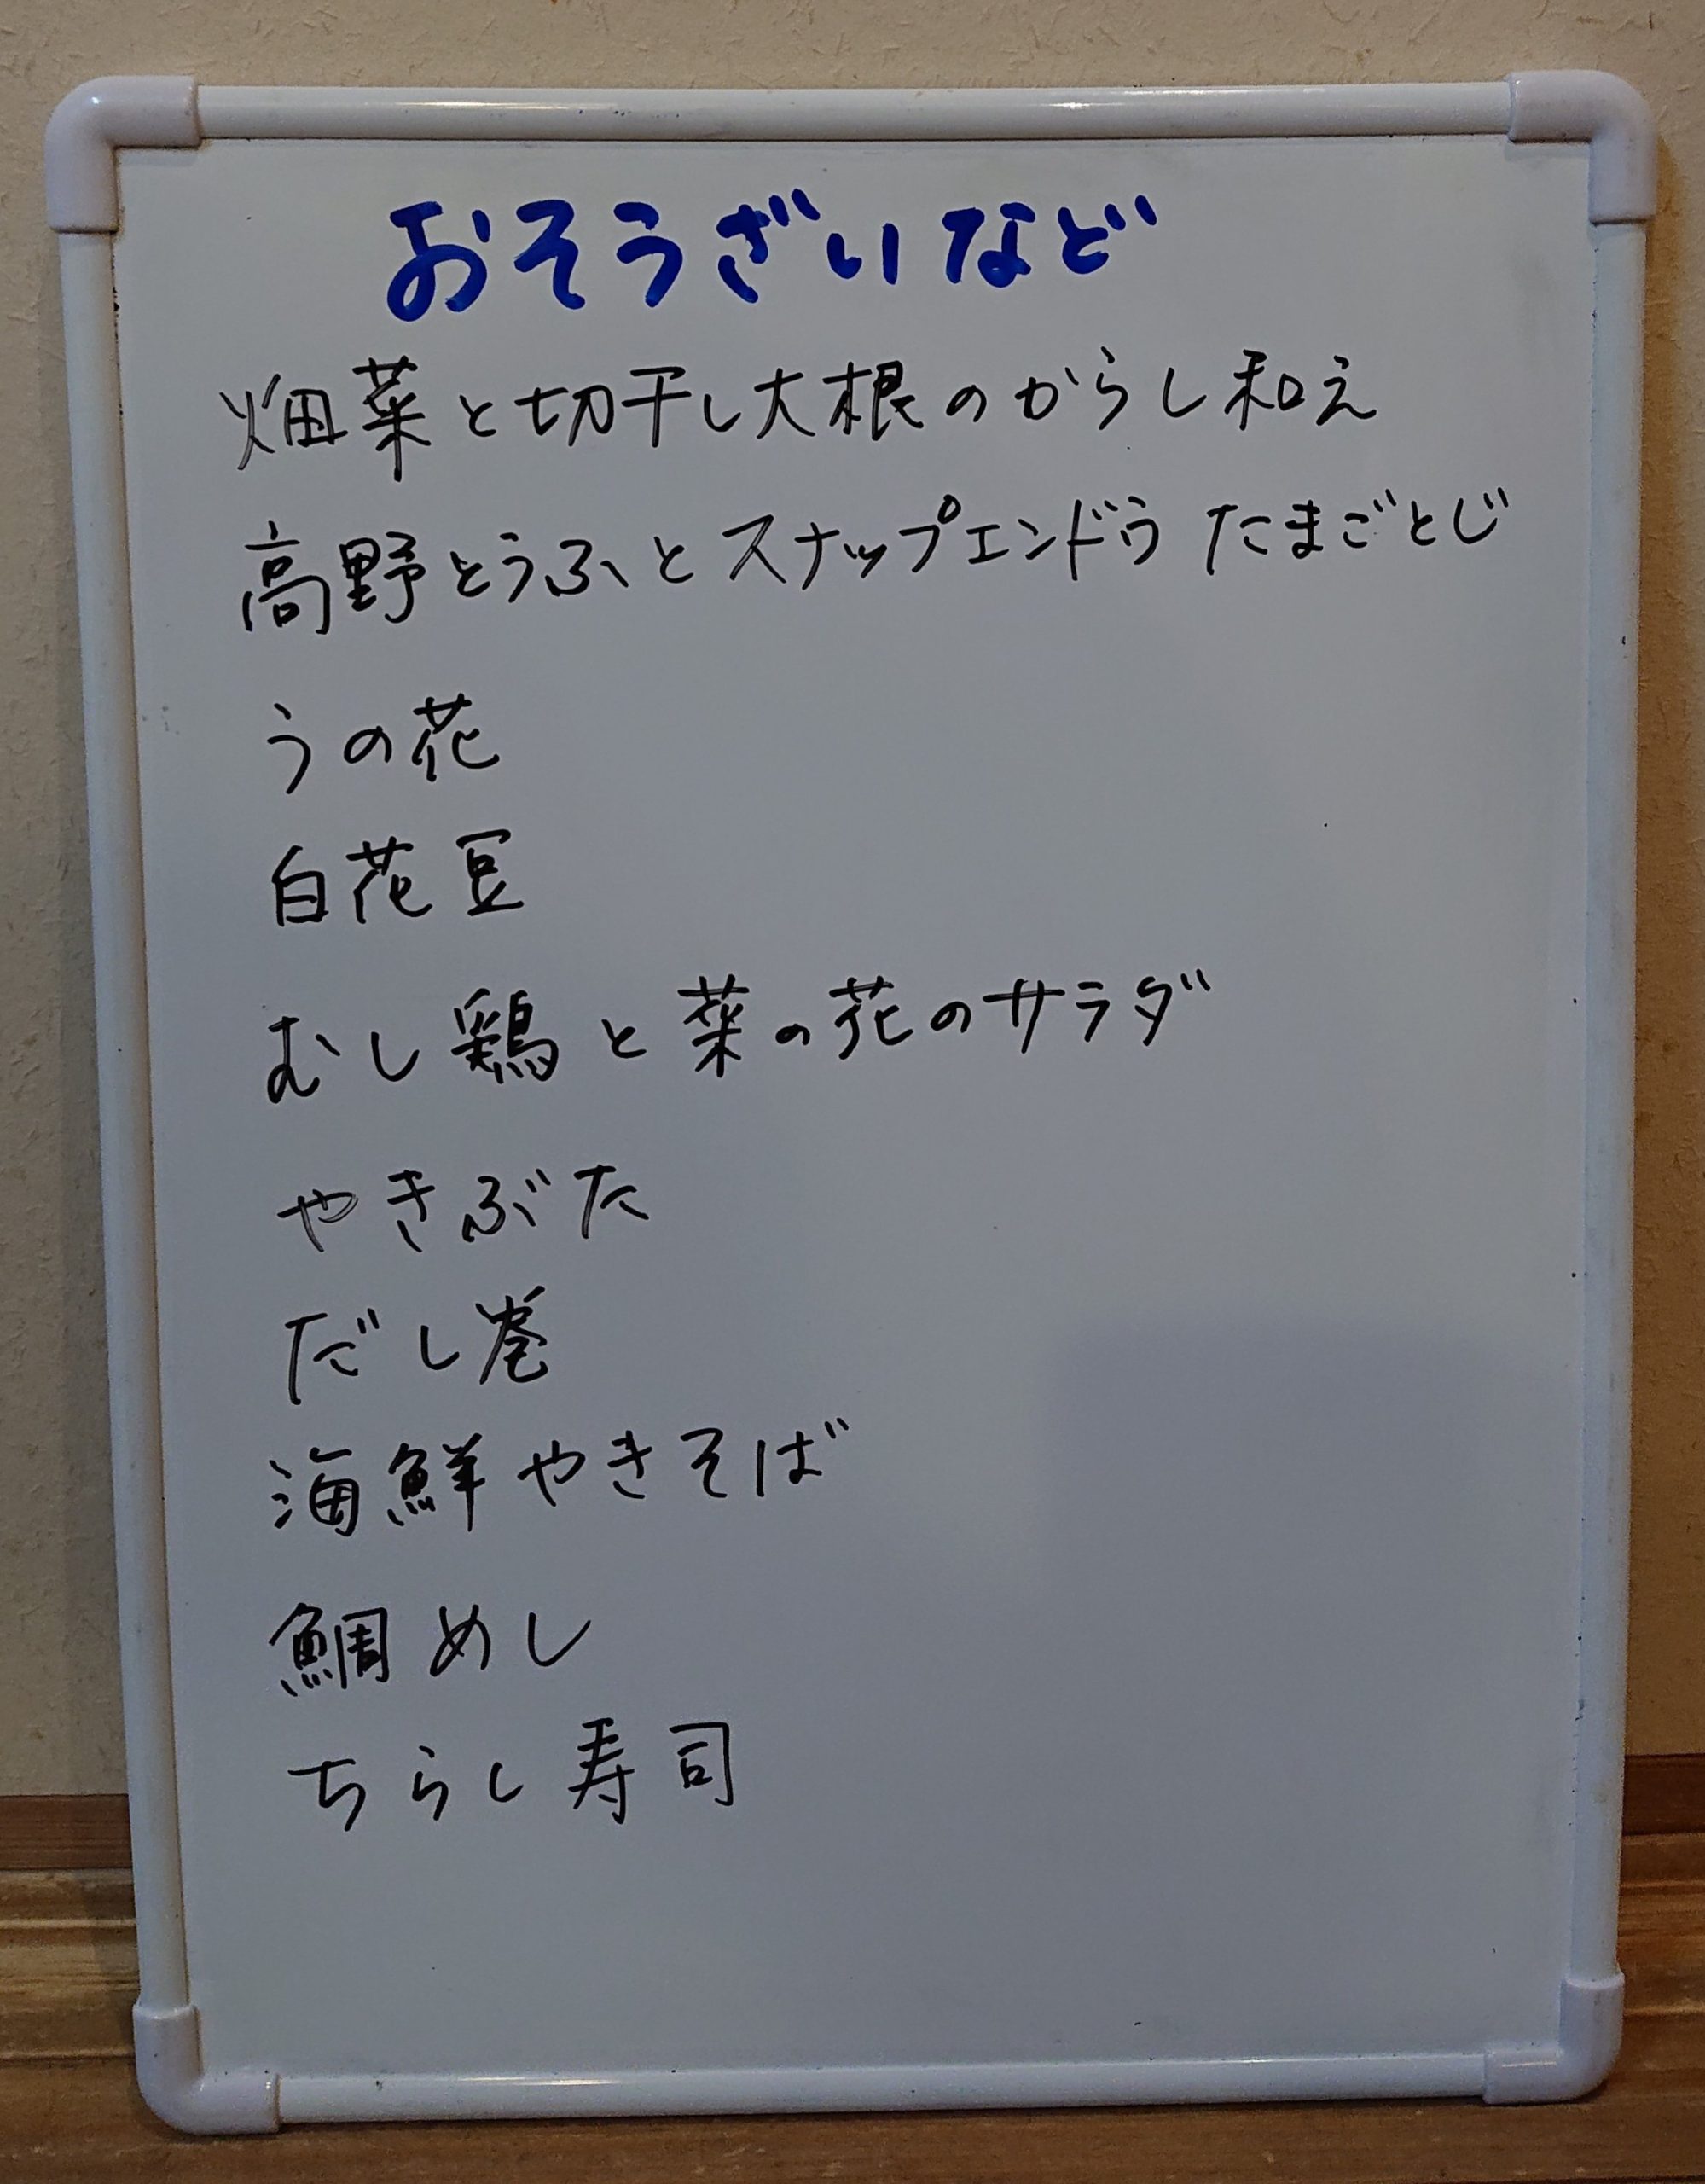 おそうざいなど
畑菜と切干し大根のからし和え
高野とうふとスナップエンドウ たまごとじ
うの花
白花豆
むし鶏と菜の花のサラダ
やきぶた
だし巻
海鮮やきそば
鯛めし
ちらし寿司